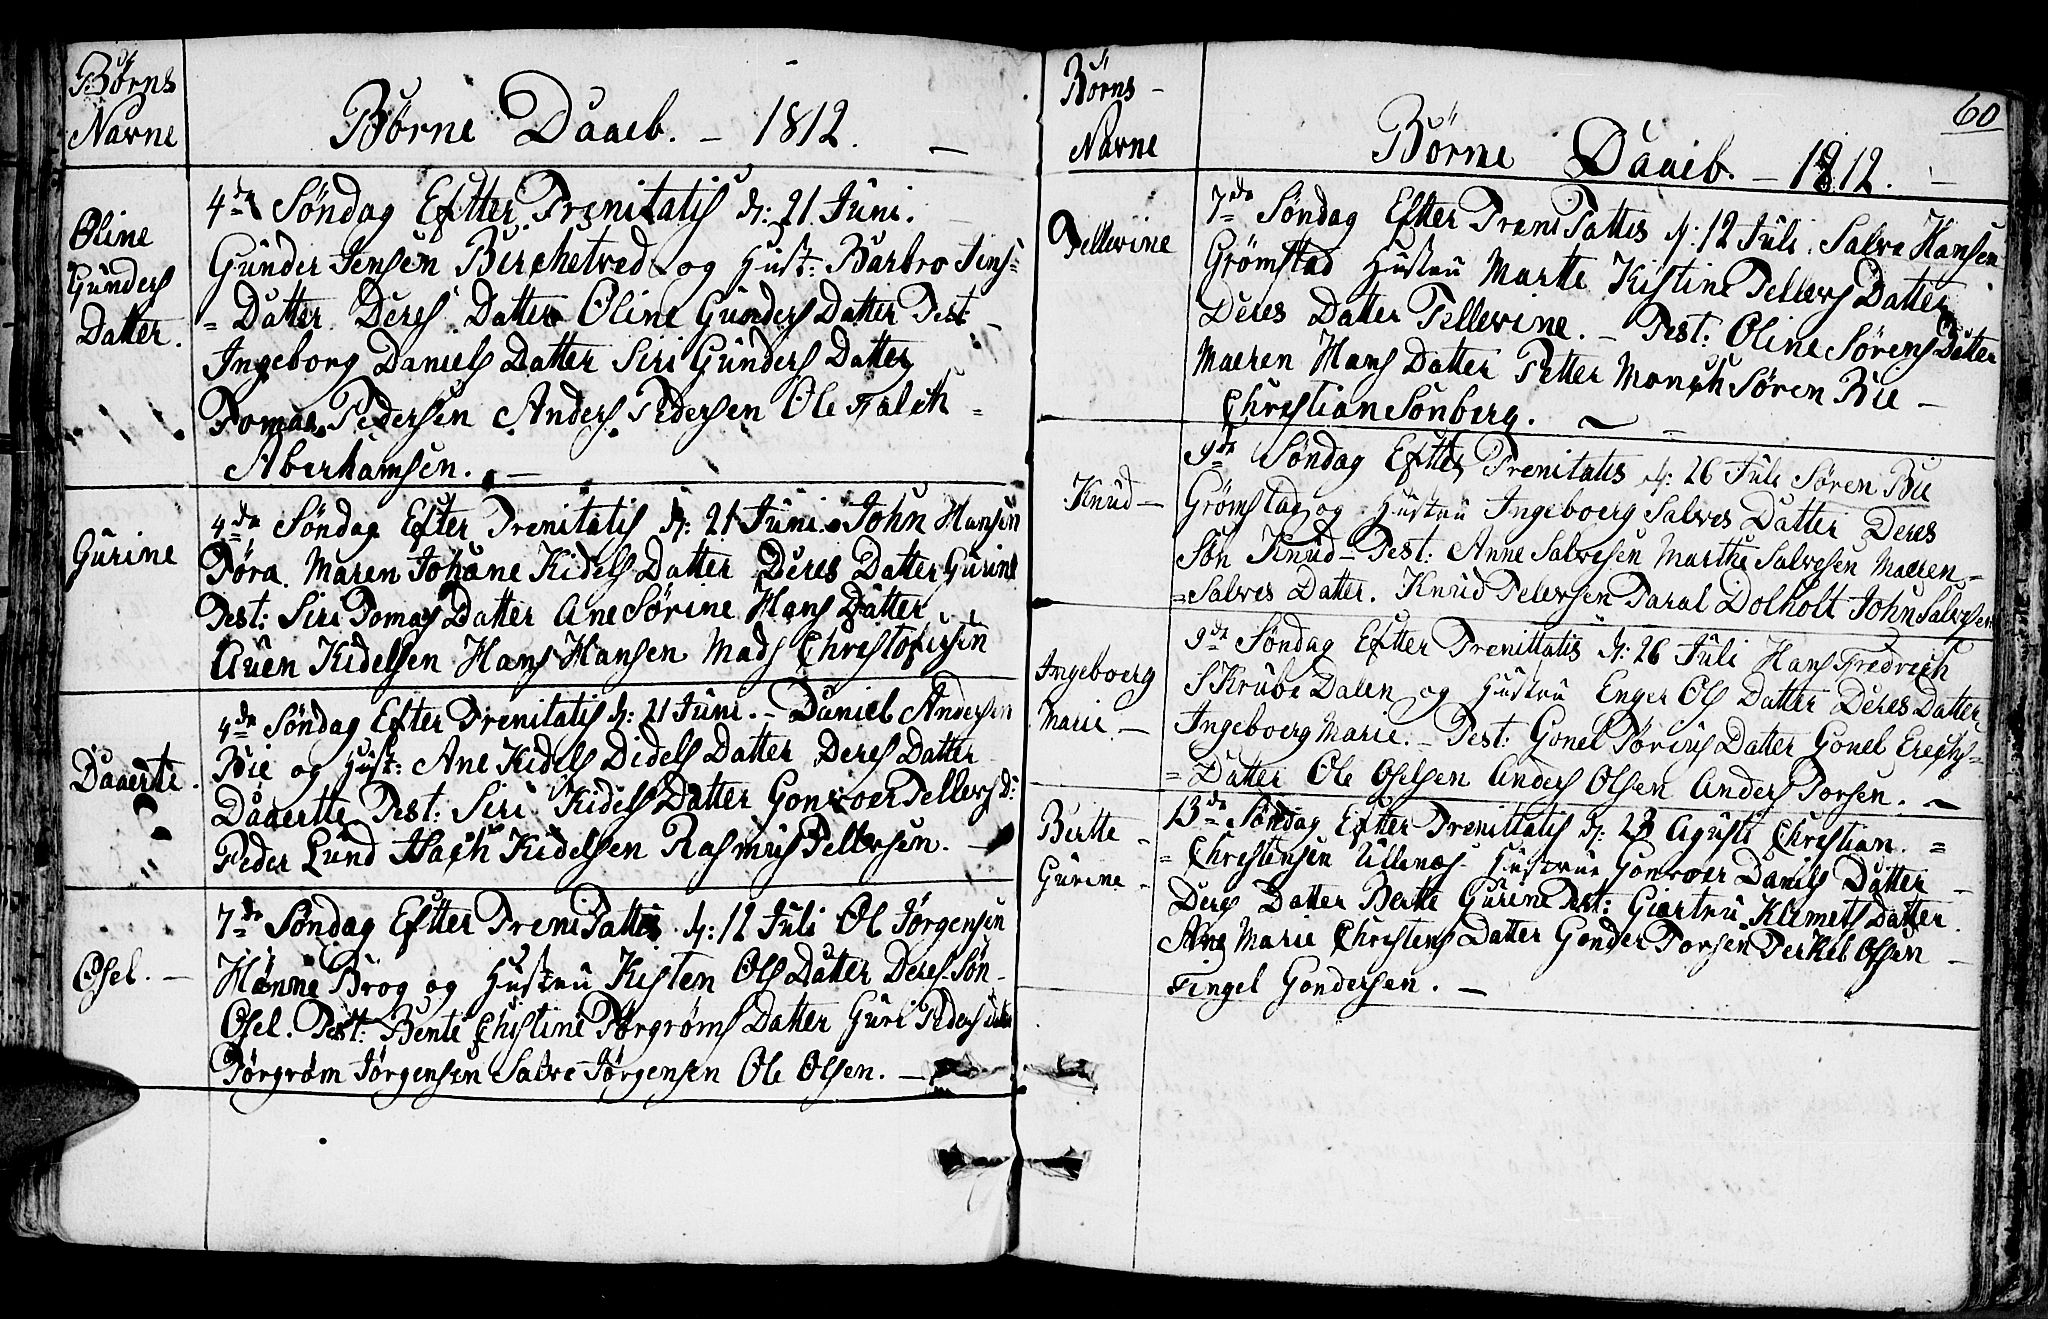 Børns
Navne
Børne Daaeb. – 1812. –
Oline
Gunders
Datter.
4de Søndag Eftter Trenitatis d: 21 Juni.
Gunder Jensen Birchetved og Hust: Barbro Jens=
= Datter Deres Datter Oline Gunders Datter Test
Ingeborg Daniels Datter Siri Gunders Datter
Tomas Pedersen Anders Pedersen Ole Falch =
Aberhamsen. –
Gurine
4de Søndag Efter Trenitatis d: 21 Juni. John Hansen
Tøra. Maren Johane Kidels Datter Deres Datter Gurine
Test: Siri Tomas Datter Ane Sørine Hans Datter
Auen Kidelsen Hans Hansen Mads Christofersen
Daaerte.
4de Søndag Efter Trenitatis d: 21 Juni. – Daniel Andersen
Bie og Hust: Ane Kidels Didels Datter Deres Datter
Daaertte Test: Siri Kidels Datter Gonvoer Tellevs D:
Peder Lund Isach Kidelsen Rasmus Tellevsen. –
Osel. –
7de Søndag Eftter Treni Tattis d: 12 Juli Ol Jørgensen
Hønne Brog og Hustru Kisten Ols Datter Deres Søn –
Osel. Test: Bente Chistine Torgrøms Datter Guri Peders Datter
Torgrøm Jørgensen Salve Jørgensen Ole Olsen. –
Børns –
Navne
60
Børne Daaeb. – 1812. –
Tellevine
7de Søndag Efter Treni Tattis d: 12 Juli. Salve Hansen
Grømstad Hustru Martte Kistine Tellevs Datter
Deres Datter Tellevine. – Test: Oline Sørens Datter
Maeren Hans Datter Petter Monch Søren Bie –
Christian Sonberg. ~
Knud –
9de Søndag Eftter Trenitatis d: 26 Juli Søren Bie
Grømstad og Hustru Ingeboerg Salves Datter Deres
Søn Knud – Test: Anne Salvesen Marthe Salvesen Maeren –
= Salves Datter. Knud Televsen Taral Dolholt John Salvesen
Ingeboerg
Marie. –
9de Søndag Eftter Trenittatis d: 26 Juli Hans Fredrech
Skrube Dalen og Hustru Enger Ols Datter Deres Datter
Ingeboerg Marie. – Test: Gonel Torius Datter Gonel Erechs=
= Datter Ole Oselsen Anders Olsen Anders Torsen. ~
Bertte –
Gurine –
13de Søndag Efter Trenittatis d: 23 Agusti Christian. =
= Christensen Ullenæs Hustrue Gonvoer Daniels Datter –
Deres Datter Bertte Gurine Test: Giertru Klemets Datter.
Ane Marie Christens Datter Gonder Torsen Terkel Olsen –
Tingel Gondersen. –